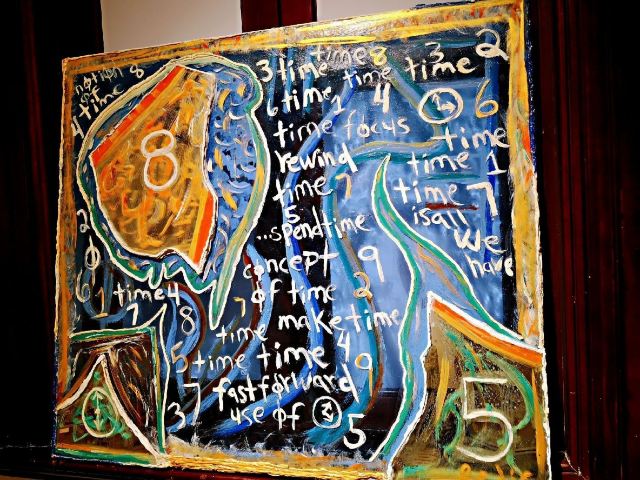 notion 8
of
time
4
8
2
0
6 1 time 4
7
8
5
7
3
3 time time 8 3 2
time time
6 time 1 4 6
time focus
time
rewind time 1
time 7 time 7
5 is all
..spend time we
concept 9 have
of time 2
7 make time
time
time time 4
9
fast forward
use of
5
5